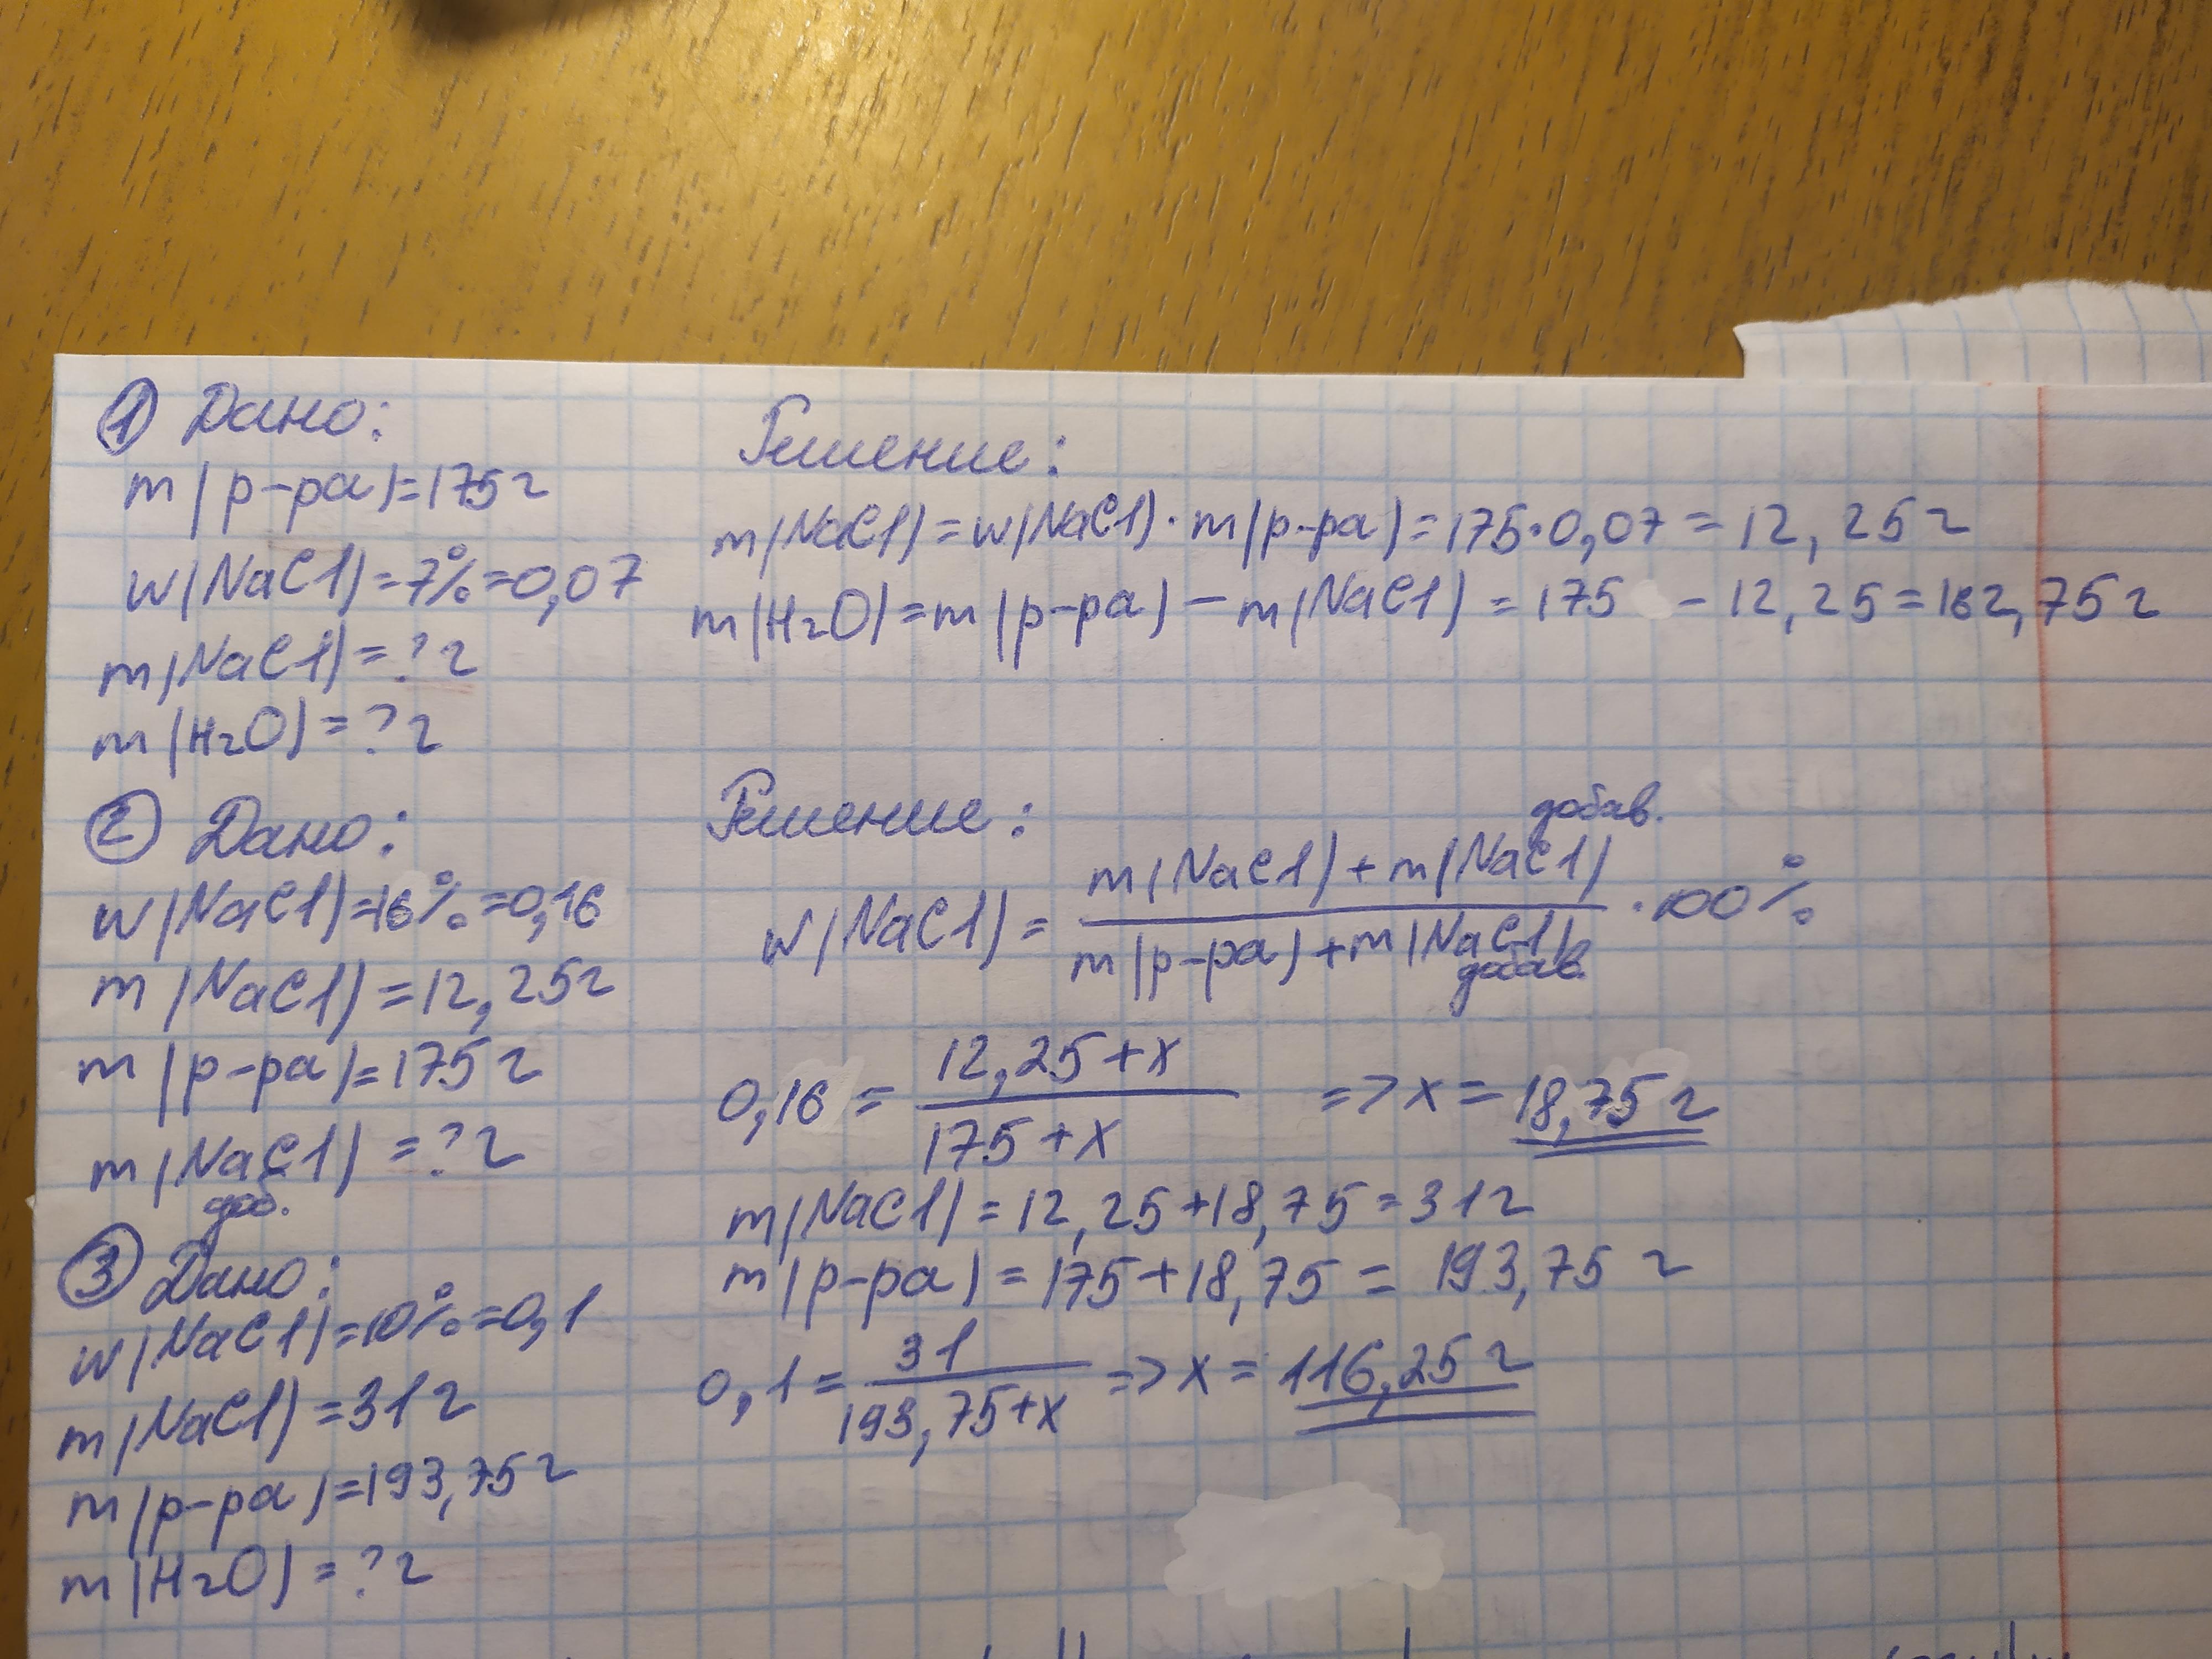 ① Дано:
m(р-ра)=175г
w(NaCl)=7%=0,07
m(NaCl)=?г
m(H₂O)=?г
Решение:
m(NaCl)=w(NaCl)·m(р-ра)=175·0,07=12,25г
m(H₂O)=m(р-ра)-m(NaCl)=175-12,25=162,75г
② Дано:
w(NaCl)=16%=0,16
m(NaCl)=12,25г
m(р-ра)=175г
m(NaCl)=?г
доб.
Решение:
добав.
m(NaCl)+m(NaCl)
w(NaCl)= ·100%
m(р-ра)+m(NaCl)
добав.
12,25+x
0,16= =>x=18,75г
175+x
m(NaCl)=12,25+18,75=31г
m(р-ра)=175+18,75=193,75г
③ Дано:
w(NaCl)=10%=0,1
m(NaCl)=31г
m(р-ра)=193,75г
m(H₂O)=?г
31
0,1= =>x=116,25г
193,75+x